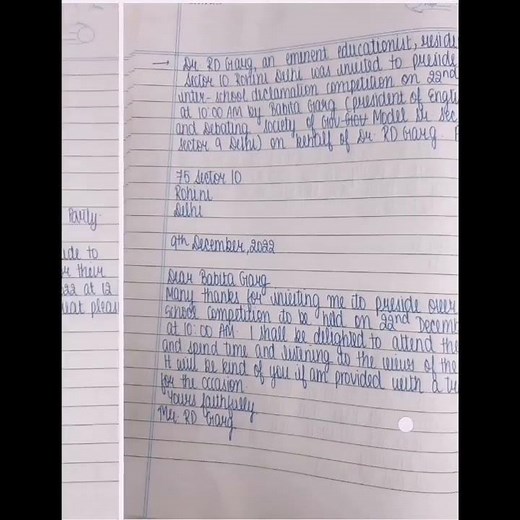 Party.
ide to
r their
22 at 12
hat pleas
→ Dr. RD Garg, an eminent educationist, resid
Sector 10 Rohini Delhi was invited to preside
inter-school declamation competition on 22nd
at 10:00 AM by Babita Garg (president of Engli
and Debating Society of Model Sr Sec
Sector 9 Delhi) on behalf of Dr RD Garg
75 Sector 10
Rohini
Delhi
9th December, 2022
Dear Babita Garg
Many thanks for inviting me to preside over
School competition to be held on 22nd Decem
at 10:00 AM. I shall be delighted to attend the
and spend time and listening to the views of the
It will be kind of you if am provided with a
for the occasion
Yours faithfully
RD Garg